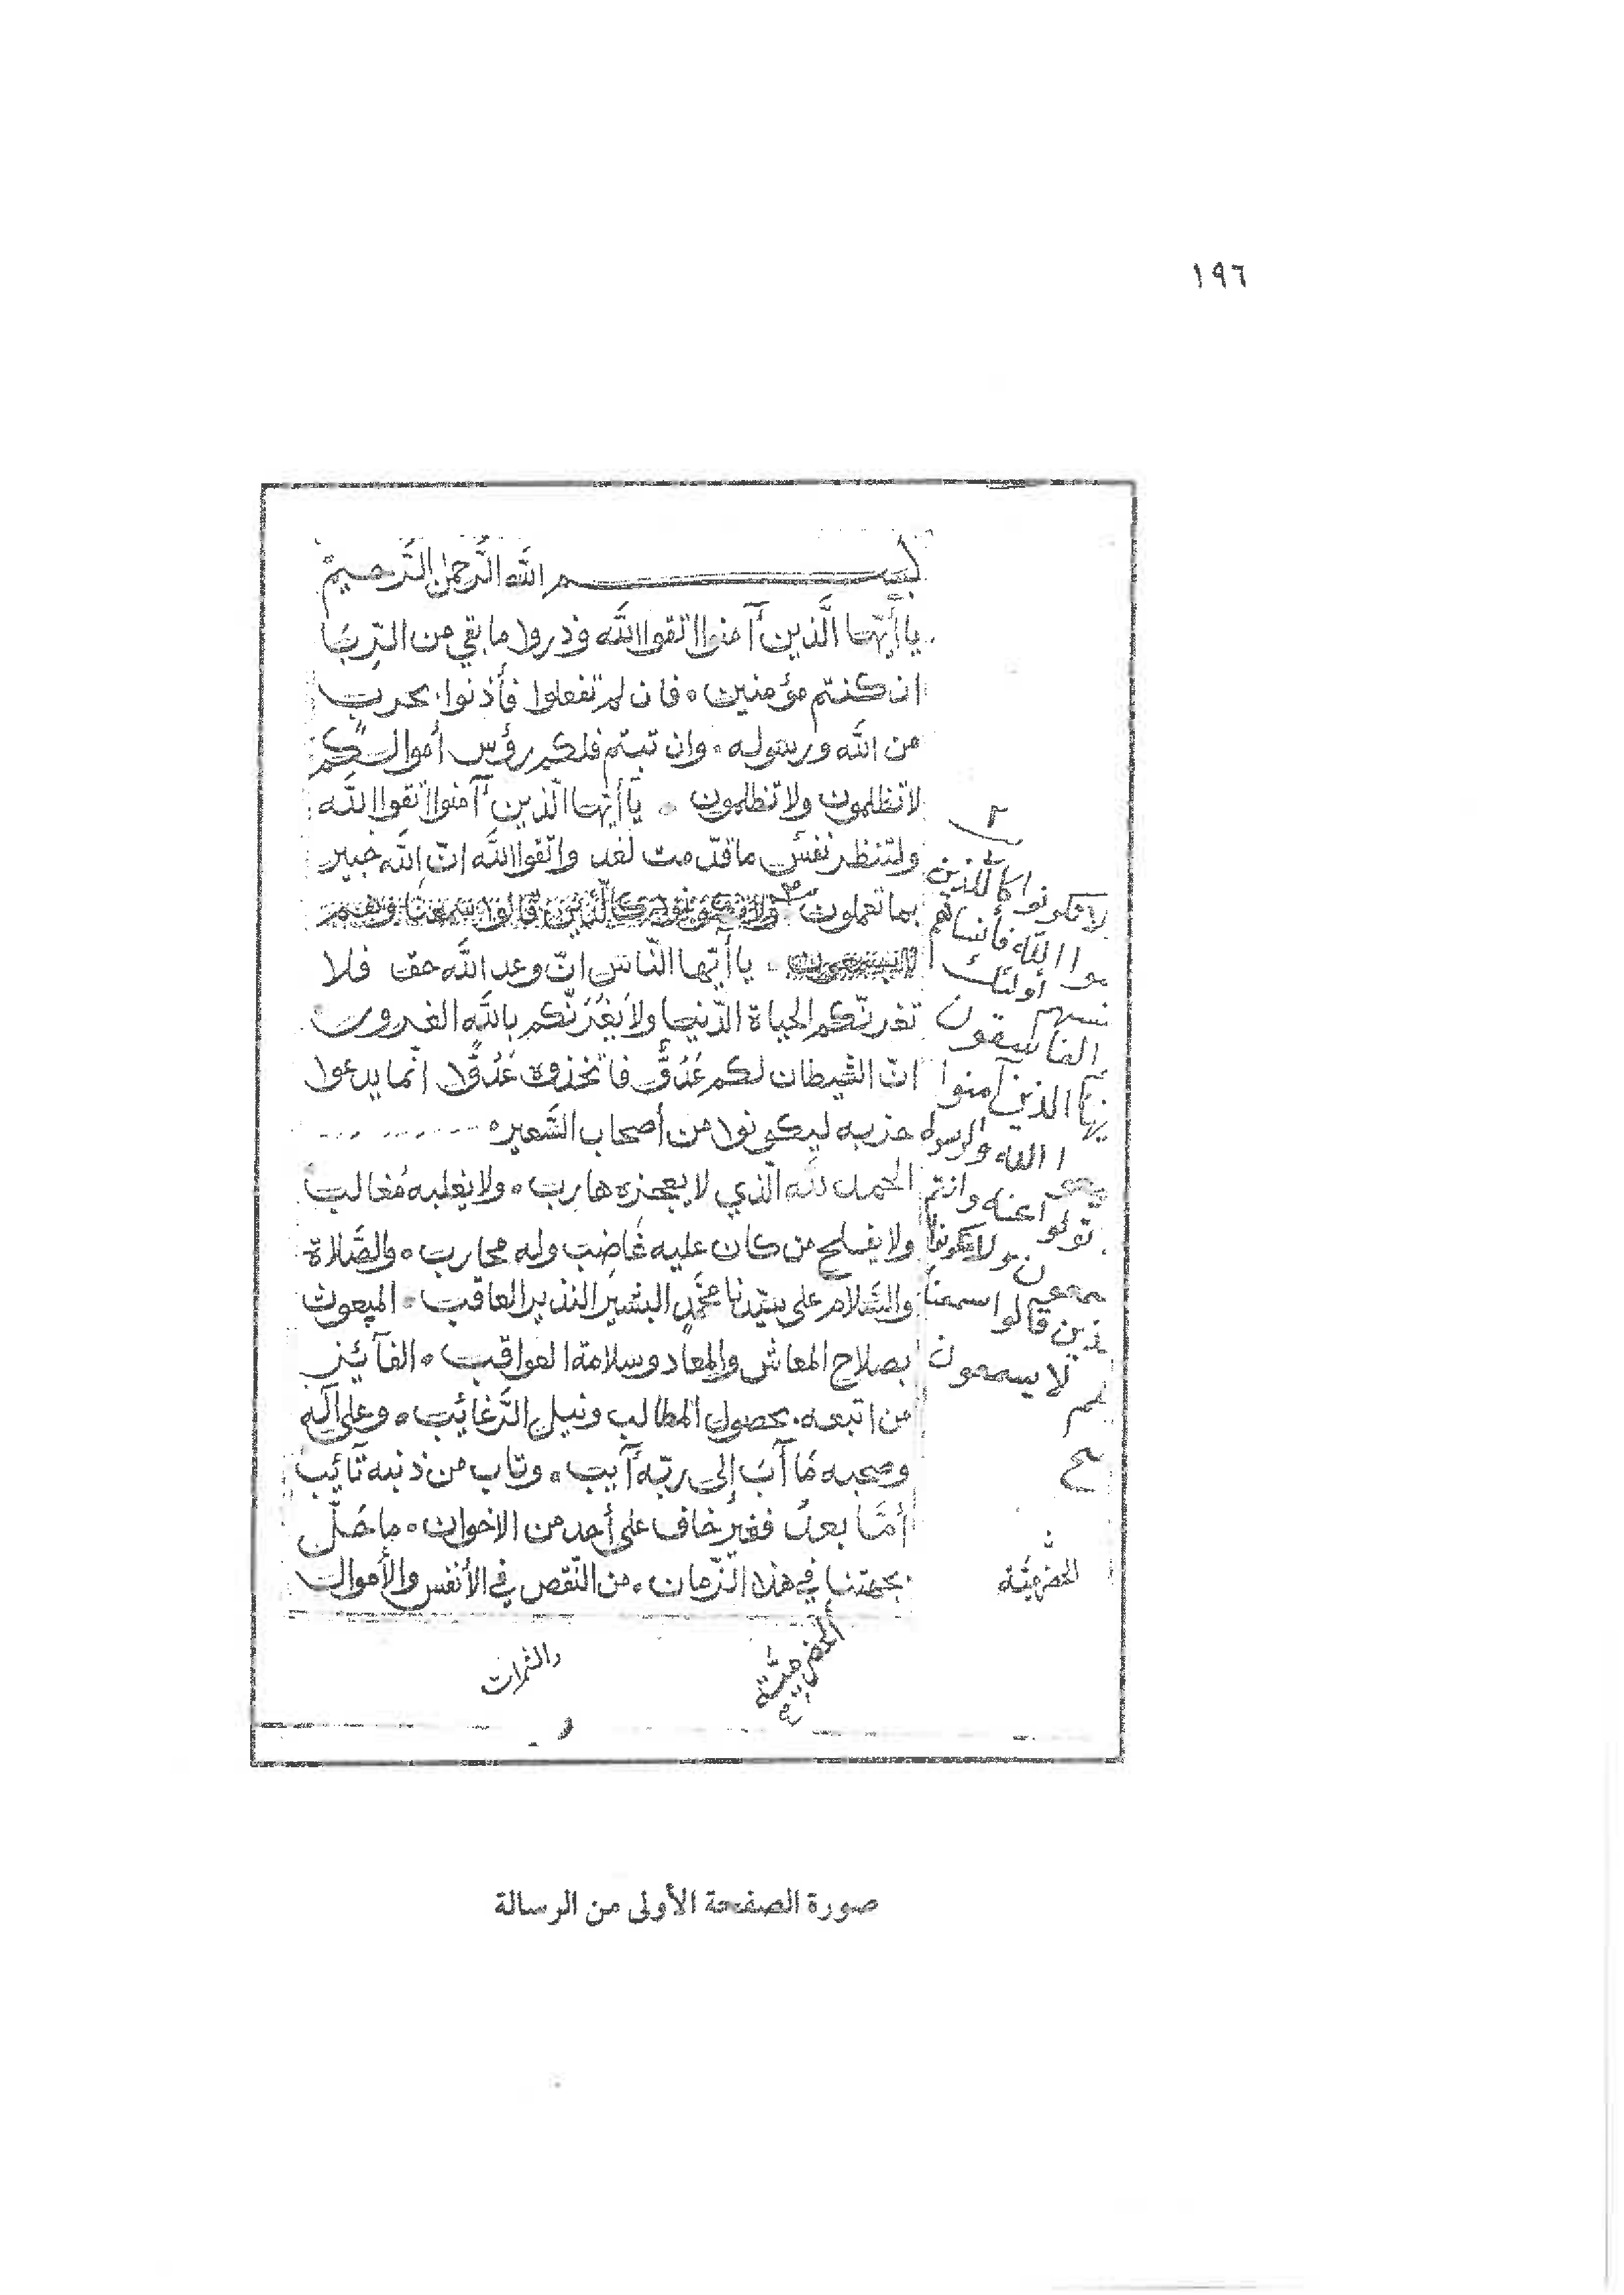 ١٩٦
بسم الله الرحمن الرحيم
يا أيّها الَّذين آمنوا اتقوا اللَّه وذروا ما بقي من الرِّبَا
ان كنتم مؤمنين ٠ فان لم تفعلوا فأذنوا بحرب
من اللَّه ورسوله ٠ وان تبتم فلكم رؤس أموالكم
لا تظلمون ولا تظلمون ٠ يا أيّها الّذين آمنوا اتقوا اللَّه
ولتنظر نفس ما قدّمت لغد واتقوا اللَّه انّ اللَّه خبير
بما تعملون ولا تكونوا كالّذين قالوا سمعنا وهم
لا يسمعون ٠ يا أيّها النّاس انّ وعد اللَّه حق فلا
تغرنّكم الحياة الدّنيا ولا يغُرَنّكم باللَّه الغرور
انّ الشيطان لكم عَدُوٌّ فاتخذوه عَدُوًّا انّما يدعوا
حزبه ليكونوا من أصحاب السَّعير ٠
الحمد للَّه الّذي لا يعجزه هارب ٠ ولا يغلبه مُغالب
ولا يفلح من كان عليه غَاضِب وله محارب ٠ والصَّلاة
والسَّلام على سيّدنا محمَّدٍ البشير النذير العاقب ٠ المبعوث
بصلاح المعاش والمعاد وسلامة العواقب ٠ الفآئيز
من اتبعه بحصول المطالب ونيل الرَّغائيب ٠ وعلى آله
وصحبه مَا آبَ إلى ربّه آيب ٠ وتاب من ذنبه تآئيب
أمَّا بعدُ فغير خاف على أحد من الاخوان ٠ ما حَلّ
بجهتنا في هذا الزّمان ٠ من النّقص في الأنفس والأموال
والثمرات
الحضرميّة
٢
لا تكونوا كالذين
سوا الله فأنساهم
نفسهم أولئك
الفاسقون
يها الذين آمنوا
الله والرسوله
تولوا عنه وانتم
سمعون ولا تكونوا
ذين قالوا سمعنا
هم لا يسمعون
صح
الحضرميّة
صورة الصفحة الأولى من الرسالة